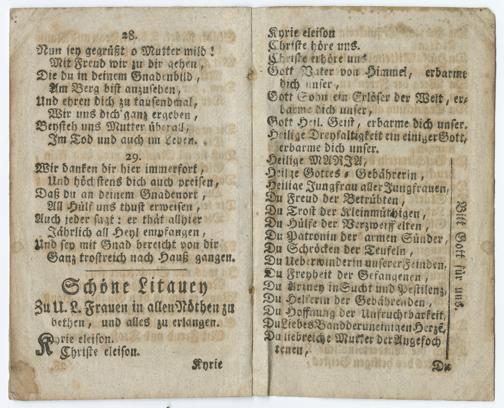 28.
Nun sey gegrüßt o Mutter mild!
Mit Freud wir zu dir gehen,
Die du in deinem Gnadenbild,
Am Berg bist anzusehen,
Und ehren dich zu tausendmal,
Wir uns dich ganz ergeben,
Beysteh uns Mutter überall,
Im Tod und auch im Leben.
29.
Wir danken dir hier immerfort,
Und höchstens dich auch preisen,
Daß du an deinem Gnadenort,
All Hülf uns thust erweisen,
Auch jeder sagt: er thät allhier
Jährlich all Heyl empfangen,
Und sey mit Gnad bereicht von dir
Ganz trostreich nach Hauß gangen.
Schöne Litaney
Zu U. L. Frauen in allen Nöthen zu
bethen, und alles zu erlangen.
Kyrie eleison.
Christe eleison.
Kyrie
Kyrie eleison
Christe höre uns.
Christe erhöre uns
Gott Vater von Himmel, erbarme
dich unser,
Gott Sohn ein Erlöser der Welt, er-
barme dich unser,
Gott Heil. Geist, erbarme dich unser.
Heilige Dreyfaltigkeit ein einiger Gott,
erbarme dich unser.
Heilige MARIA,
Heilge Gottes-Gebährerin,
Heilige Jungfrau aller Jungfrauen,
Du Freud der Betrübten,
Du Trost der Kleinmüthigen,
Du Hülfe der Verzweifelten
Du Patronin der armen Sünder,
Du Schröcken der Teufeln,
Du Ueberwinderin unserer Feinden,
Du Freyheit der Gefangenen,
Du Arzney in Sucht und Pestilenz,
Du Helferin der Gebährenden,
Du Hoffnung der Unfruchtbarkeit,
Du Liebes Band der uneinigen Herze,
Du liebreiche Mutter der Angefoch
tenen,
Bitt Gott für uns.
Du